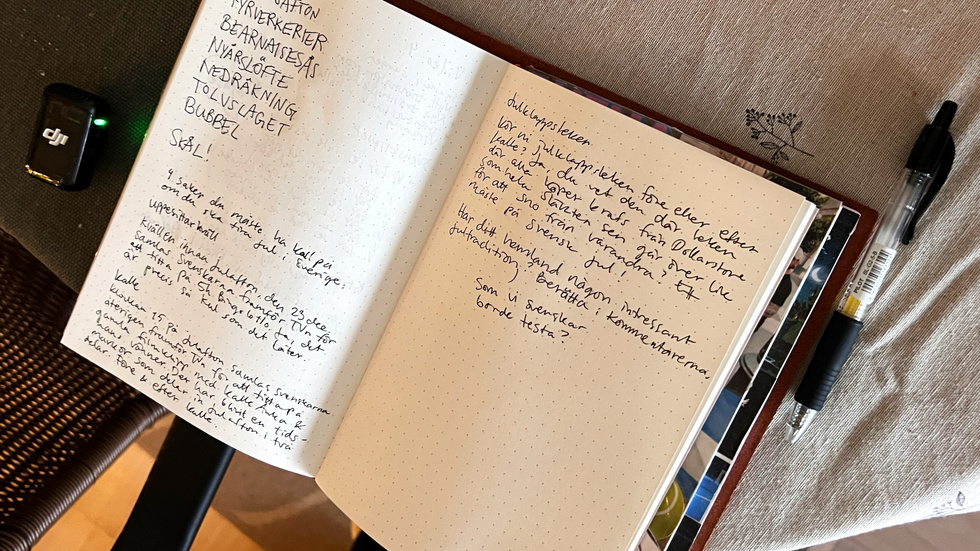 AFTON
FYRVERKERIER
BEARNAISESÅS
NYÅRSLÖFTE
NEDRÄKNING
TOLVSLAGET
BUBBEL
SKÅL!
4 saker du måste ha koll på
om du ska fira jul i Sverige:
uppesittarkväll
kvällen innan julafton, den 23 dec
samlas svenskarna framför TVn för
att titta på Bingolotto. Ja, det
är precis så kul som det låter.
Kalle
klockan 15 på julafton samlas svenskarna
återigen framför TVn för att titta på
gamla filmklipp med Kalle Anka &
hans vänner. Det har blivit en tids-
markör som delar in julafton i två
delar. Före & efter Kalle.
Julklappsleken
Kör vi julklappsleken före eller efter
Kalle? Ja, du vet den där leken
där alla köper krafs från Dollarstore
som hela släkten sen går över lik
för att sno från varandra. Ett
måste på svensk jul!
Har ditt hemland någon intressant
jultradition? Berätta i kommentarerna,
Som vi svenskar
borde testa?
dji